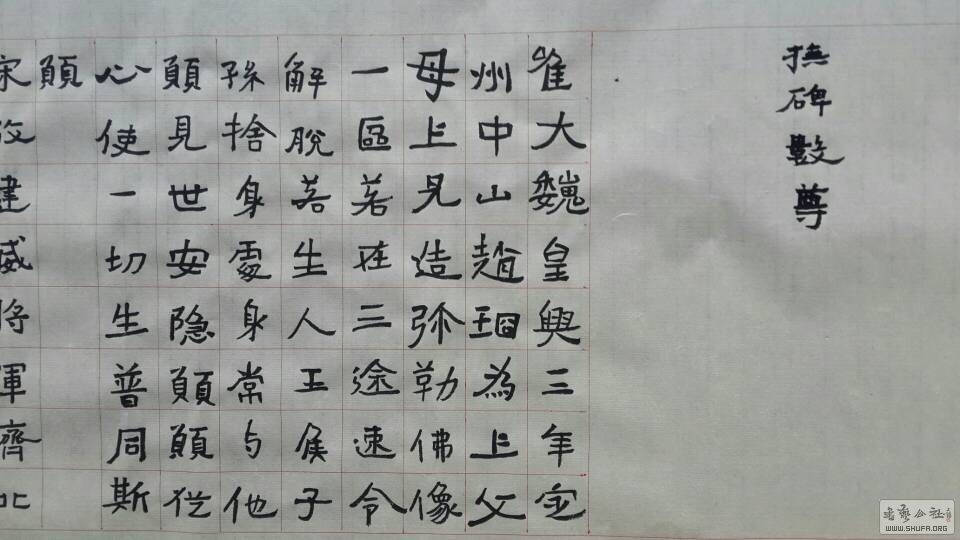 撫碑數尊
隹大魏皇興三年定
州中山趙珇為上父
母上兄造弥勒佛像
一區若在三途速令
解脫若生人王侯子
孫捨身處身常与他
願見世安隐願願從
心使一切生普同斯
願
宋故建威將軍齊北
書藝公社
WWW.SHUFA.ORG